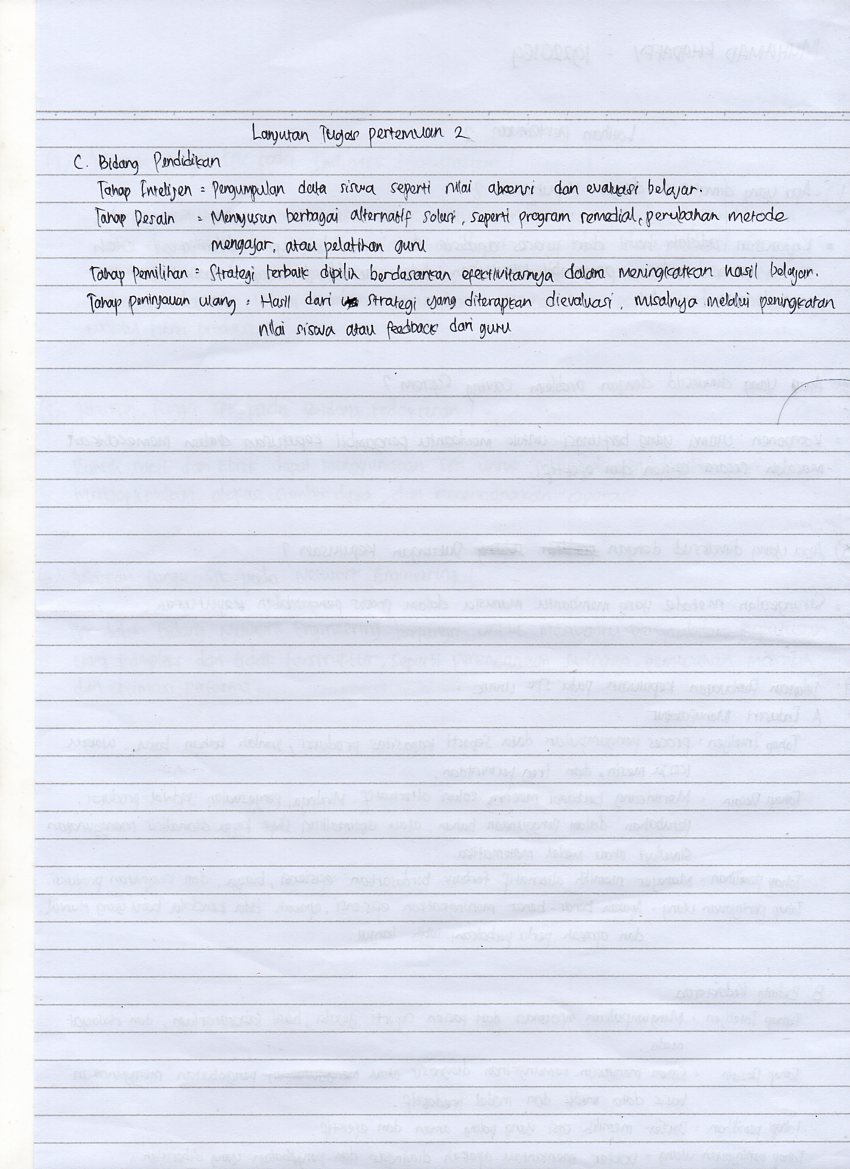 Lanjutan Tugas pertemuan 2
C. Bidang Pendidikan
Tahap Intelijen = Pengumpulan data siswa seperti nilai absensi dan evaluasi belajar.
Tahap Desain = Menyusun berbagai alternatif solusi, seperti program remedial, perubahan metode
mengajar, atau pelatihan guru
Tahap Pemilihan = Strategi terbaik dipilih berdasarkan efektivitasnya dalam meningkatkan hasil belajar.
Tahap peninjauan ulang = Hasil dari strategi yang diterapkan dievaluasi, misalnya melalui peningkatan
nilai siswa atau feedback dari guru